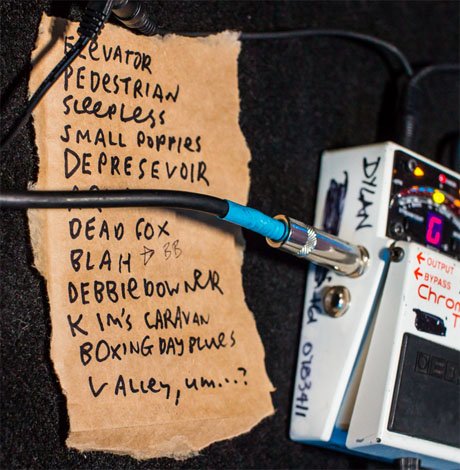 ELEVATOR
PEDESTRIAN
SLEEPLESS
SMALL POPPIES
DEPRESEVOIR
DEAD FOX
BLAH → BB
DEBBIE DOWNER
KIM'S CARAVAN
BOXING DAY BLUES
VALLEY, UM...?
DYLAN
G
← OUTPUT
← BYPASS
Chrom
T